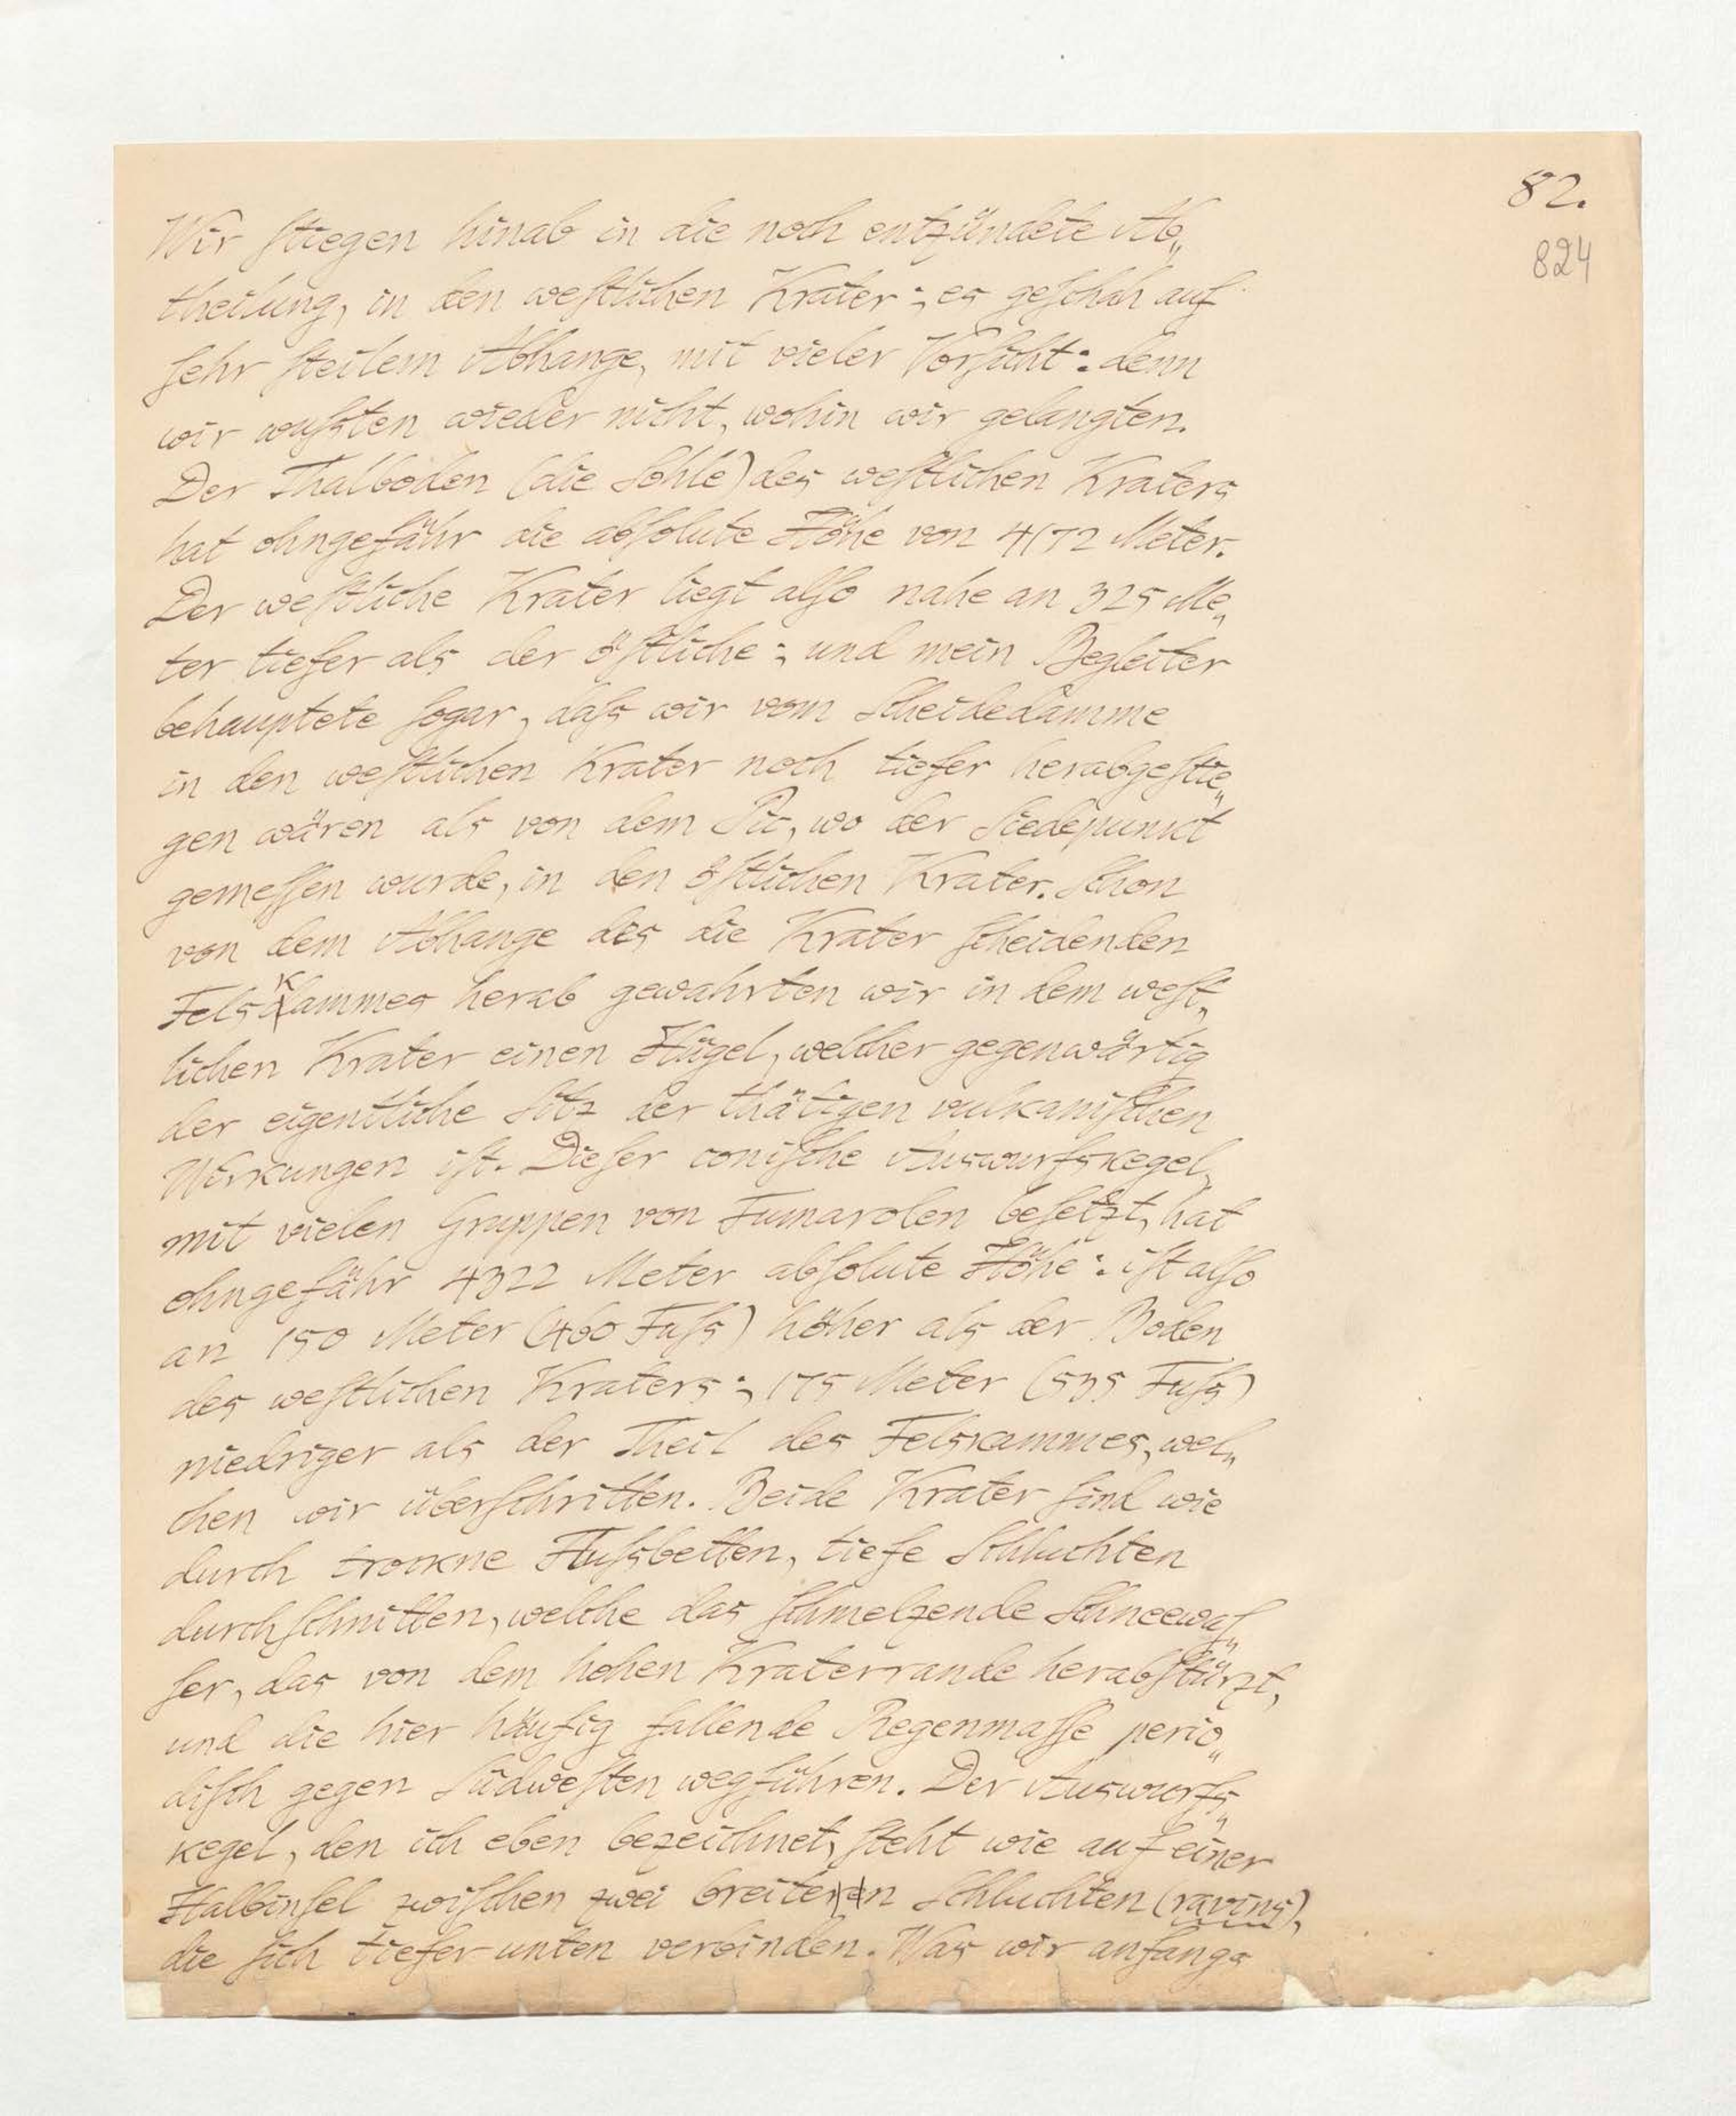 82.
824
Wir stiegen hinab in die noch entzündete Ab„
theilung, in den westlichen Krater; es geschah auf
sehr steilem Abhange, mit vieler Vorsicht: denn
wir wußten wieder nicht, wohin wir gelangten.
Der Thalboden (die Sohle) des westlichen Kraters
hat ohngefähr die absolute Höhe von 4172 Meter.
Der westliche Krater liegt also nahe an 325 Me„
ter tiefer als der östliche; und mein Begleiter
behauptete sogar, daß wir vom Scheidedamme
in den westlichen Krater noch tiefer herabgestie„
gen wären als von dem Pic, wo der Siedepunkt
gemessen wurde, in den östlichen Krater. Schon
von dem Abhange des die Krater scheidenden
Felskammes herab gewahrten wir in dem west„
lichen Krater einen Hügel, welcher gegenwärtig
der eigentliche Sitz der thätigen vulkanischen
Wirkungen ist. Dieser conische Auswurfskegel,
mit vielen Gruppen von Fumarolen besetzt, hat
ohngefähr 4322 Meter absolute Höhe: ist also
an 150 Meter (460 Fuß) höher als der Boden
des westlichen Kraters; 175 Meter (535 Fuß)
niedriger als der Theil des Felskammes, wel„
chen wir überschritten. Beide Krater sind wie
durch trockne Flußbetten, tiefe Schluchten
durchschnitten, welche das schmelzende Schneewas„
ser, das von dem hohen Kraterrande herabstürzt,
und die hier häufig fallende Regenmasse perio„
disch gegen Südwesten wegführen. Der Auswurfs„
kegel, den ich eben bezeichnet, steht wie auf einer
Halbinsel zwischen zwei breiten Schluchten (ravins),
die sich tiefer unten verbinden. Was wir anfangs